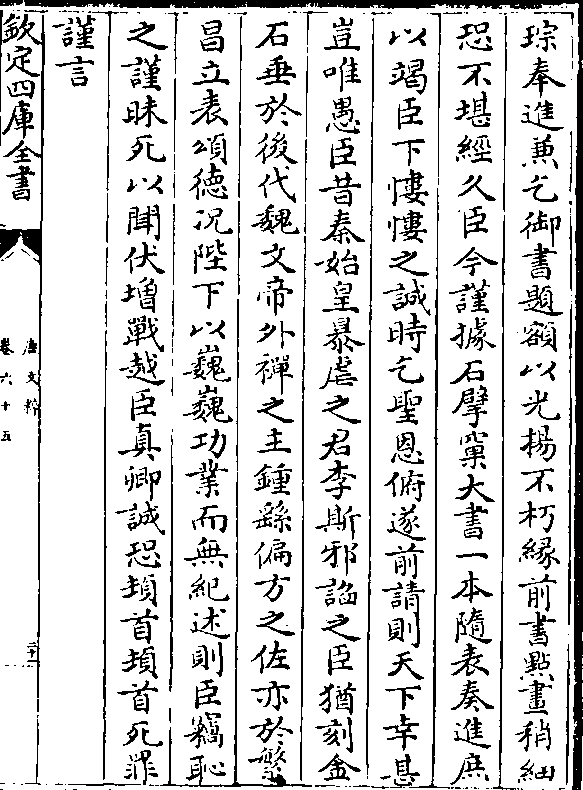 琮奉進兼乞御書題額以光揚不朽緣前書點畫稍細
恐不堪經久臣今謹據石擘窠大書一本隨表奏進庶
以竭臣下悽悽之誠時乞聖恩俯遂前請則天下幸甚
豈唯愚臣昔秦始皇暴虐之君李斯邪謟之臣猶刻金
石垂於後代魏文帝外禪之主鍾繇偏方之佐亦於繁
昌立表頌德况陛下以巍巍功業而無紀述則臣竊恥
之謹昧死以聞伏增戰越臣真卿誠恐頓首頓首死罪
謹言
欽定四庫全書
唐文粹
卷六十五